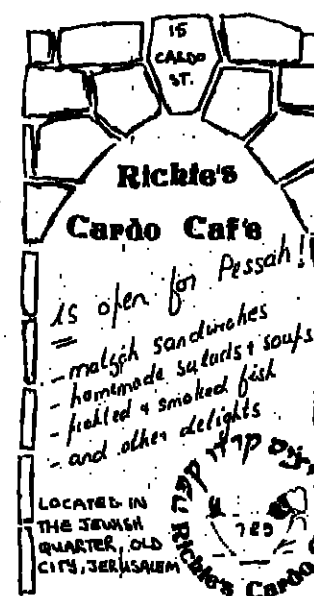 15
CARDO
ST.
Richie's
Cardo Cafe
is open for Pessah!
- matzah sandwiches
- homemade salads + soups
- pickled + smoked fish
- and other delights
LOCATED IN
THE JEWISH
QUARTER, OLD
CITY, JERUSALEM
Richie's Cardo